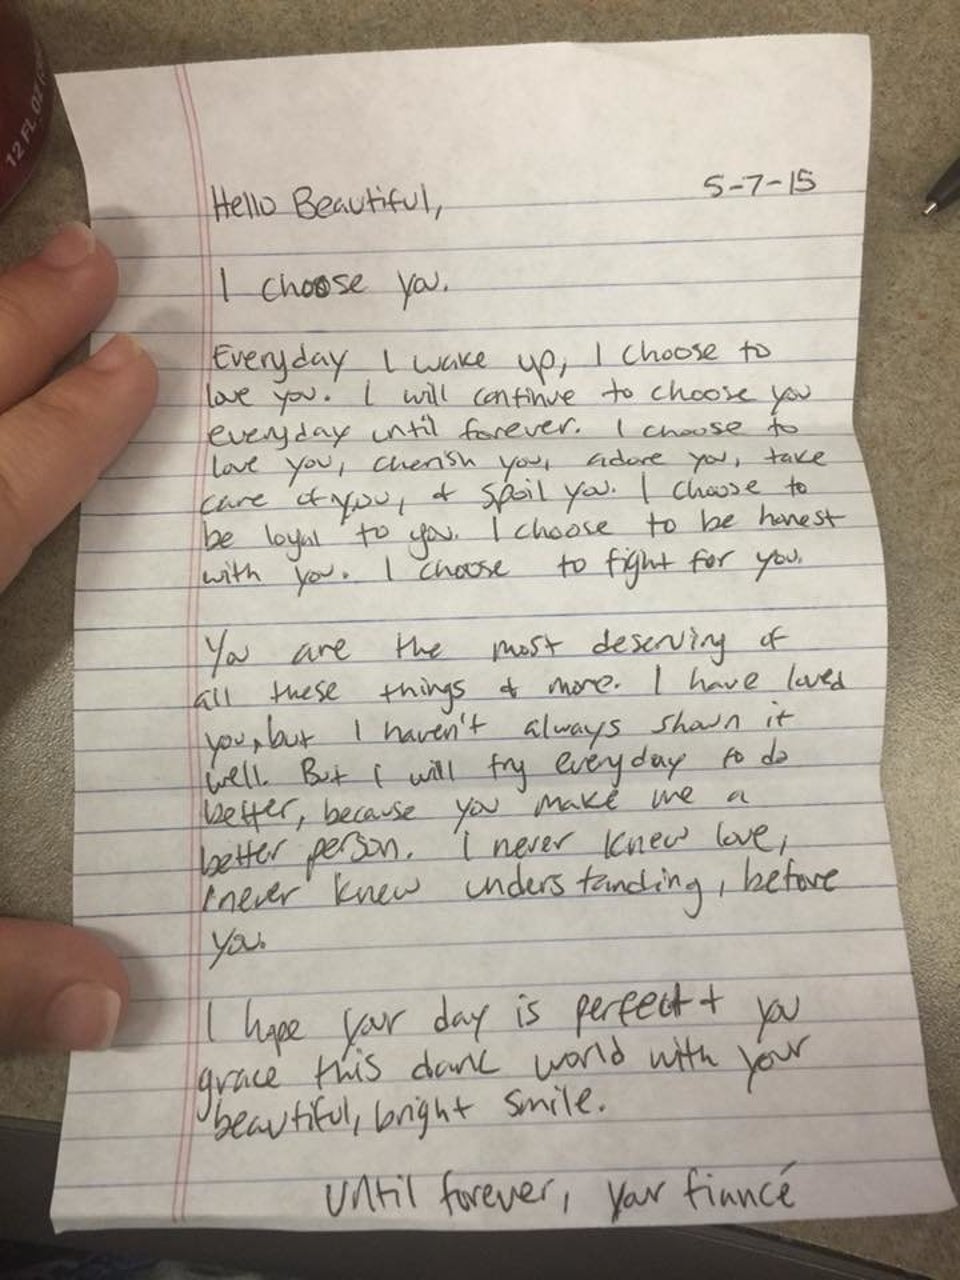 12 FL OZ
Hello Beautiful,
5-7-15
I choose you.
Everyday I wake up, I choose to
love you. I will continue to choose you
everyday until forever. I choose to
love you, cherish you, adore you, take
care of you, & spoil you. I choose to
be loyal to you. I choose to be honest
with you. I choose to fight for you.
You are the most deserving of
all these things & more. I have loved
you, but I haven't always shown it
well. But I will try everyday to do
better, because you make me a
better person. I never knew love,
I never knew understanding, before
you.
I hope your day is perfect + you
grace this dark world with your
beautiful, bright smile.
Until forever, your fiancé